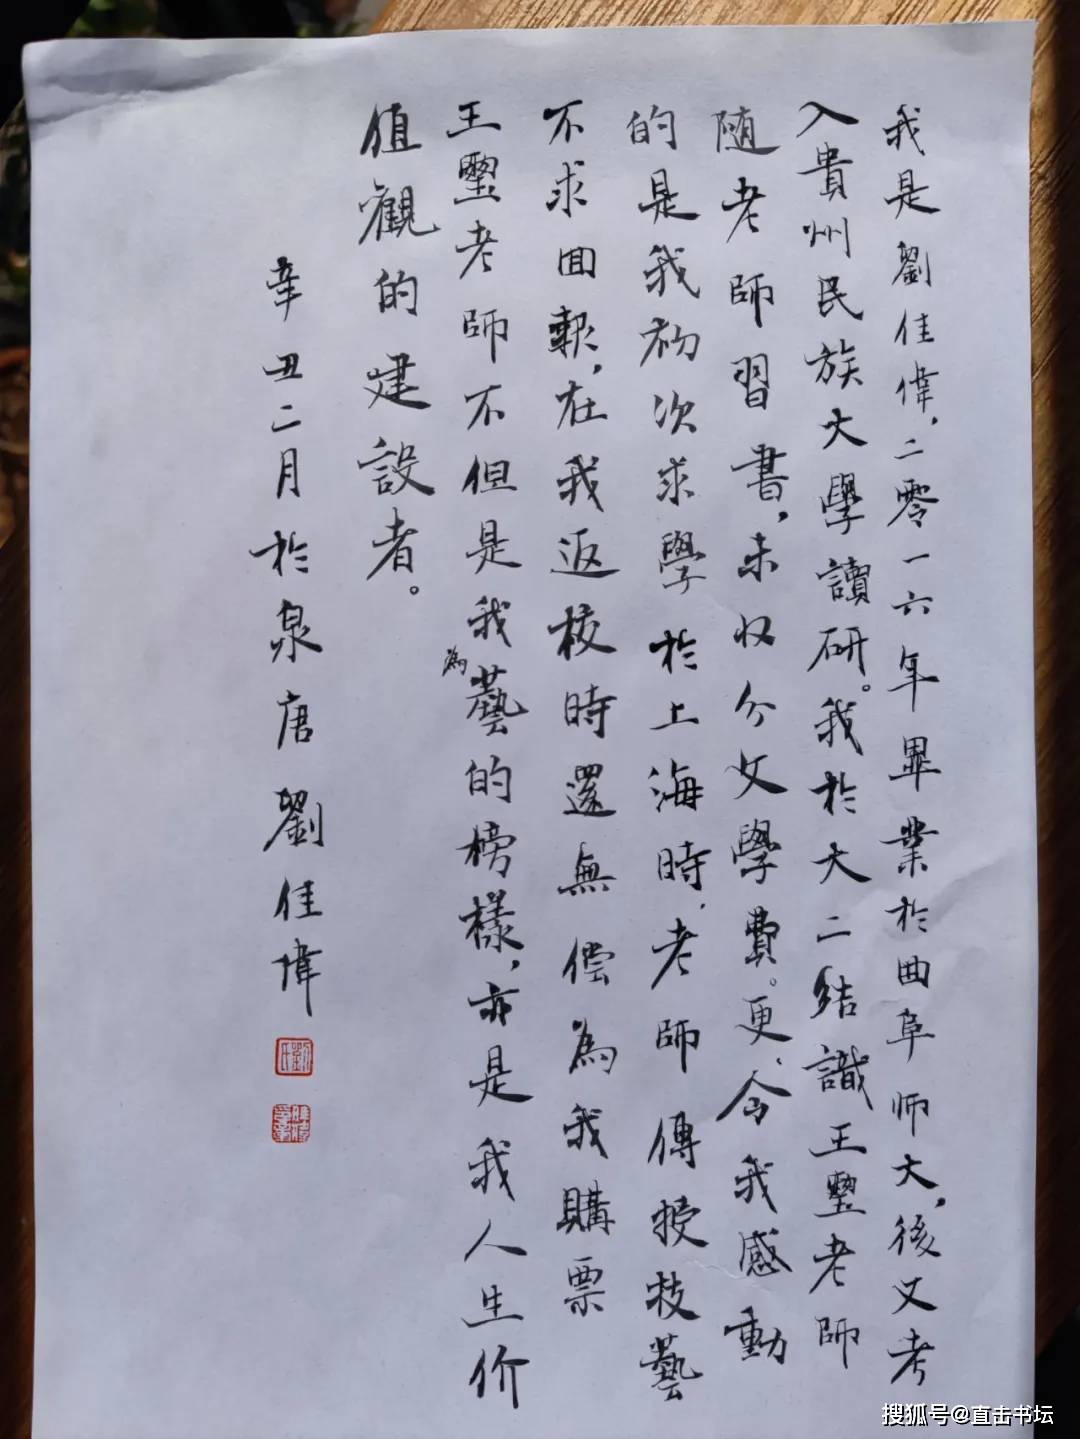 我是劉佳偉，二零一六年畢業於曲阜师大，後又考
入貴州民族大學讀研。我於大二結識王墼老師
随老師習書，未收分文學費。更、令我感動
的是我初次求學於上海時，老師傳授技藝
不求回報，在我返校時還無偿為我購票
王墼老師不但是我為藝的榜樣，亦是我人生价
值觀的建設者。
辛丑二月於泉唐劉佳偉
劉氏
搜狐号@直击书坛